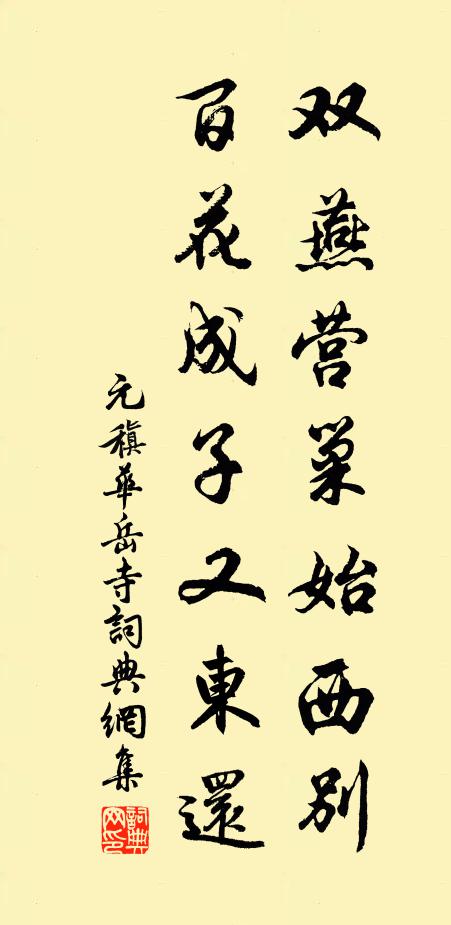 双燕营巢始西别
百花成子又東還
元稹華岳寺詞典網集
詞典網印